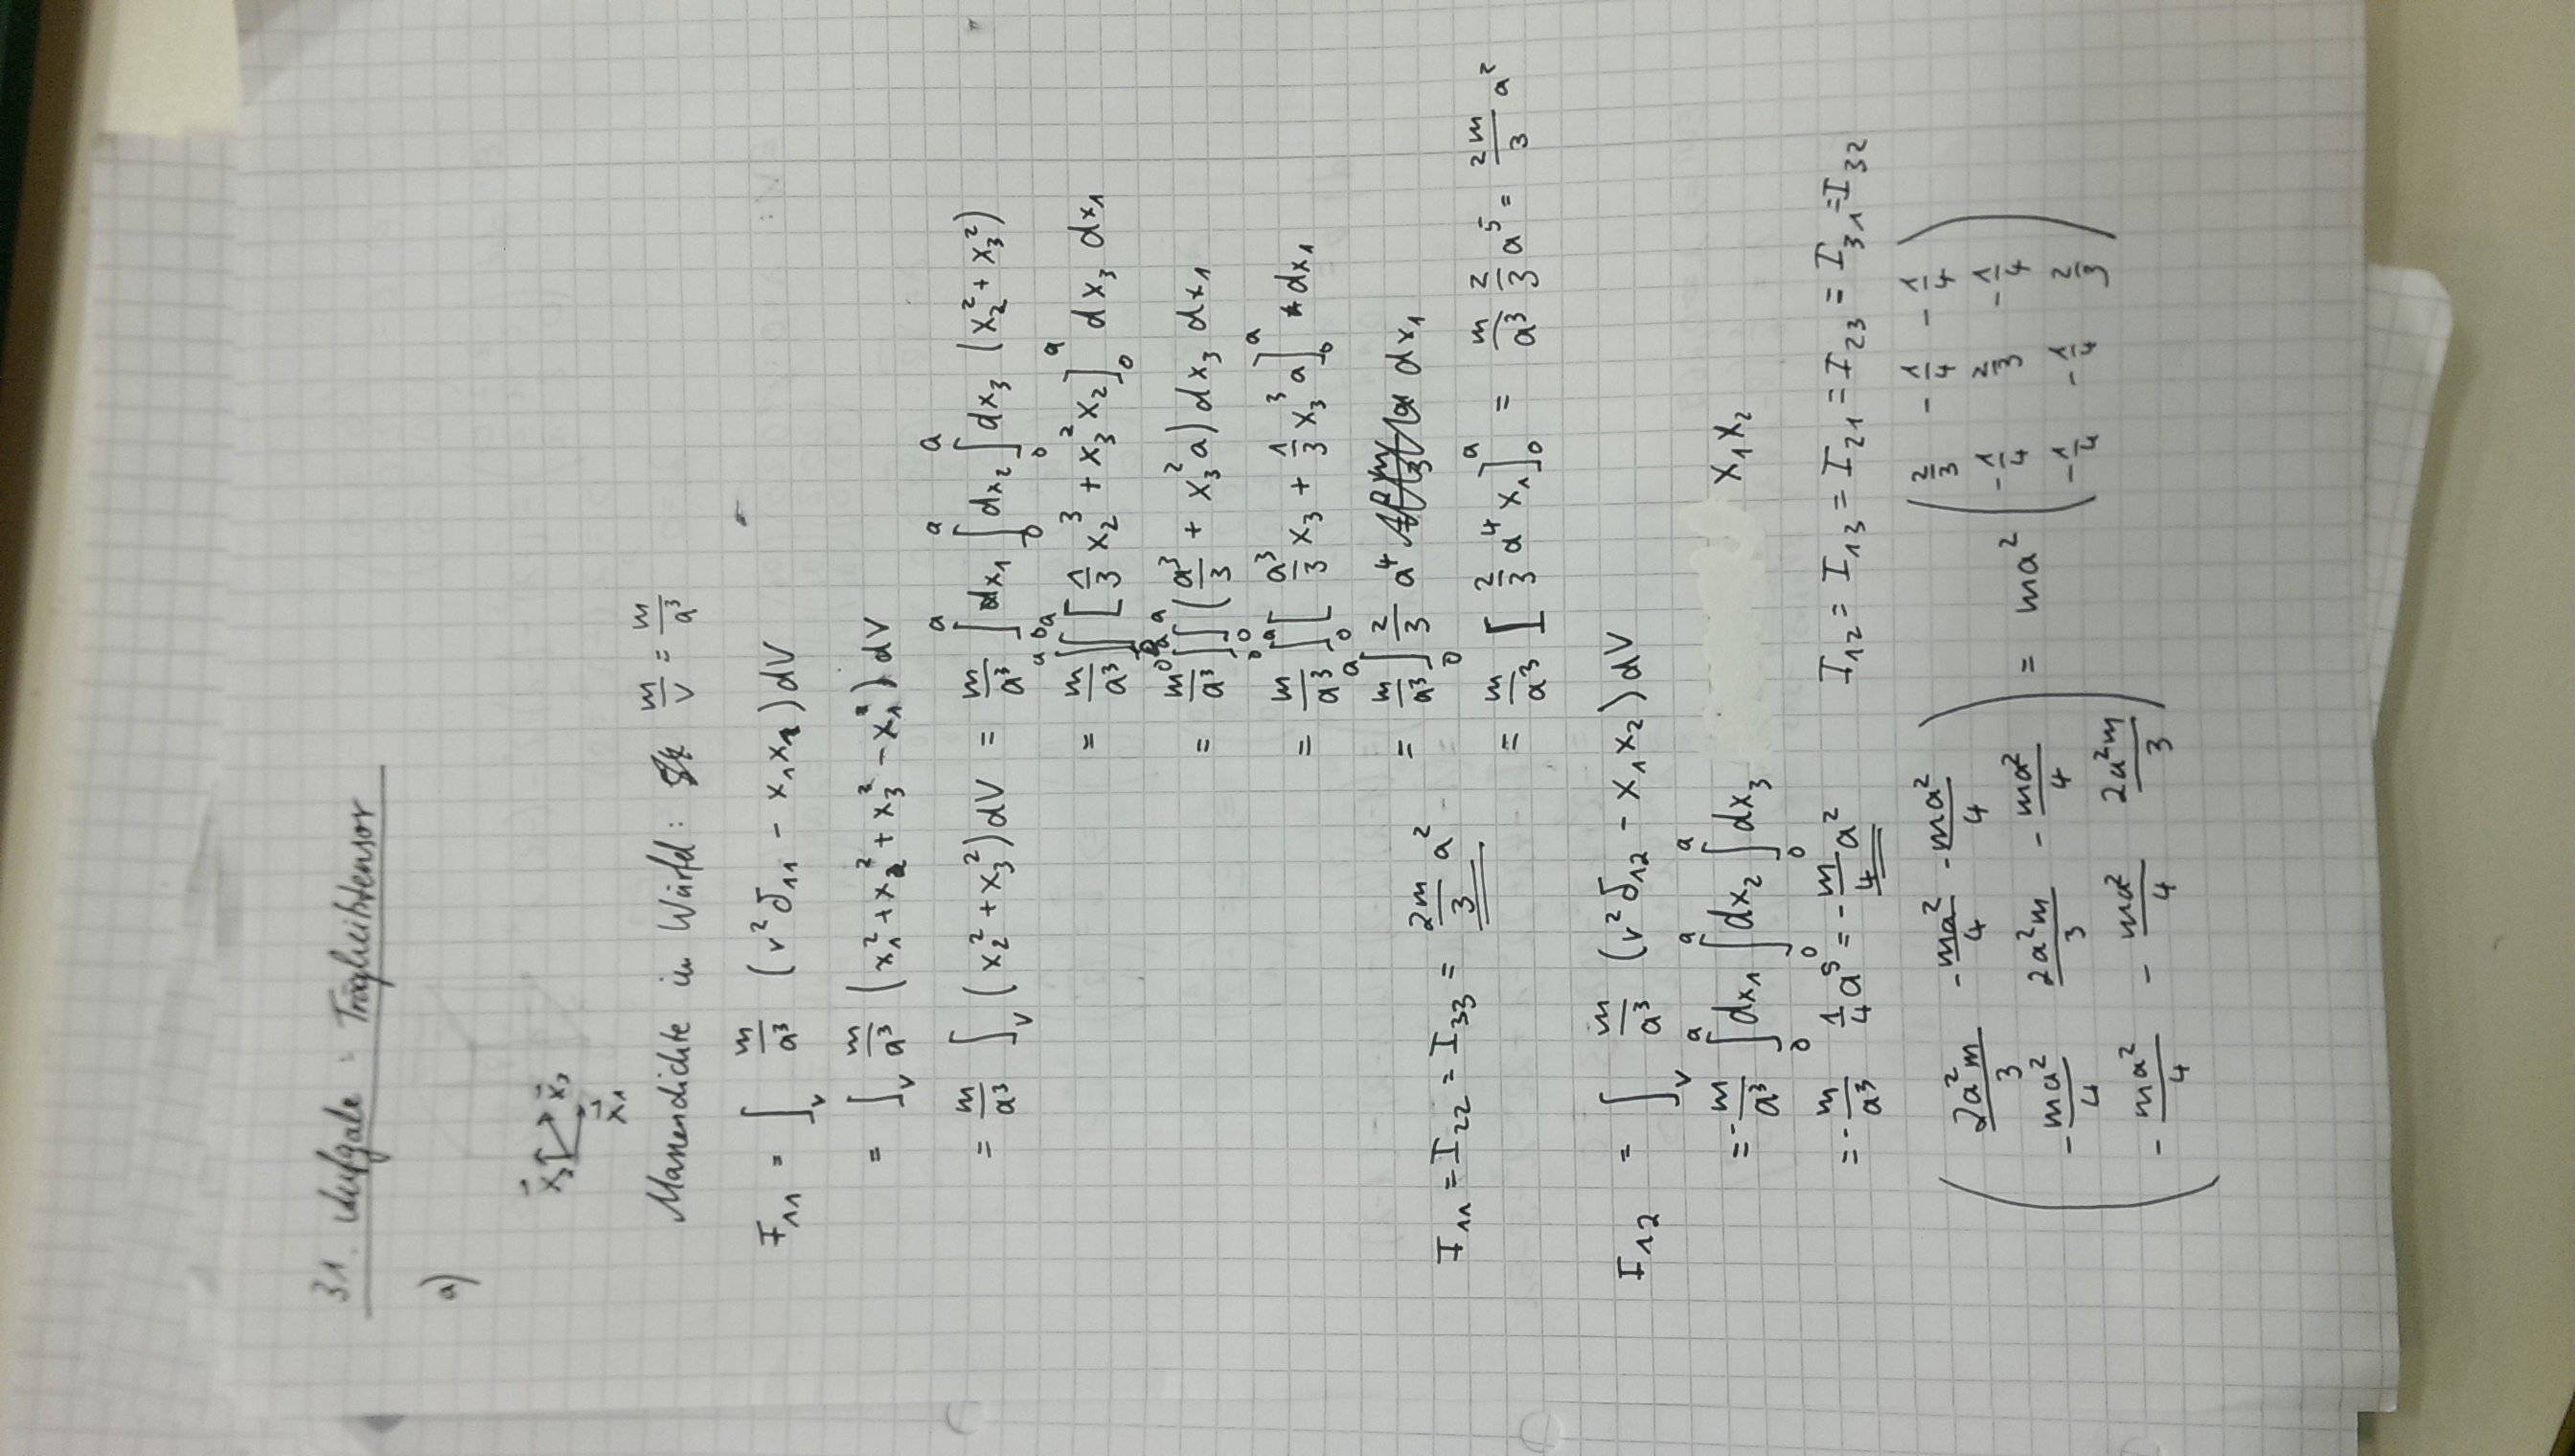 31. Aufgabe: Trägheitstensor
a)
x⃗₂ x⃗₃
x⃗₁
Massendichte im Würfel: m/V = m/a³
I₁₁ = ∫_V m/a³ (r² δ₁₁ - x₁x₁) dV
= ∫_V m/a³ (x₁² + x₂² + x₃² - x₁²) dV
= m/a³ ∫_V (x₂² + x₃²) dV = m/a³ ∫₀ᵃ dx₁ ∫₀ᵃ dx₂ ∫₀ᵃ dx₃ (x₂² + x₃²)
= m/a³ ∫₀ᵃ ∫₀ᵃ [1/3 x₂³ + x₃² x₂]₀ᵃ dx₃ dx₁
= m/a³ ∫₀ᵃ ∫₀ᵃ (a³/3 + x₃² a) dx₃ dx₁
= m/a³ ∫₀ᵃ [a³/3 x₃ + 1/3 x₃³ a]₀ᵃ dx₁
= m/a³ ∫₀ᵃ 2/3 a⁴ dx₁
= m/a³ [2/3 a⁴ x₁]₀ᵃ = m/a³ 2/3 a⁵ = 2m/3 a²
I₁₁ = I₂₂ = I₃₃ = 2m/3 a²
I₁₂ = ∫_V m/a³ (r² δ₁₂ - x₁x₂) dV
= - m/a³ ∫₀ᵃ dx₁ ∫₀ᵃ dx₂ ∫₀ᵃ dx₃ x₁x₂
= - m/a³ 1/4 a⁵ = - m/4 a² I₁₂ = I₁₃ = I₂₁ = I₂₃ = I₃₁ = I₃₂
( 2a²m/3 - ma²/4 - ma²/4 ) = ma² ( 2/3 - 1/4 - 1/4 )
( - ma²/4 2a²m/3 - ma²/4 ) ( - 1/4 2/3 - 1/4 )
( - ma²/4 - ma²/4 2a²m/3 ) ( - 1/4 - 1/4 2/3 )